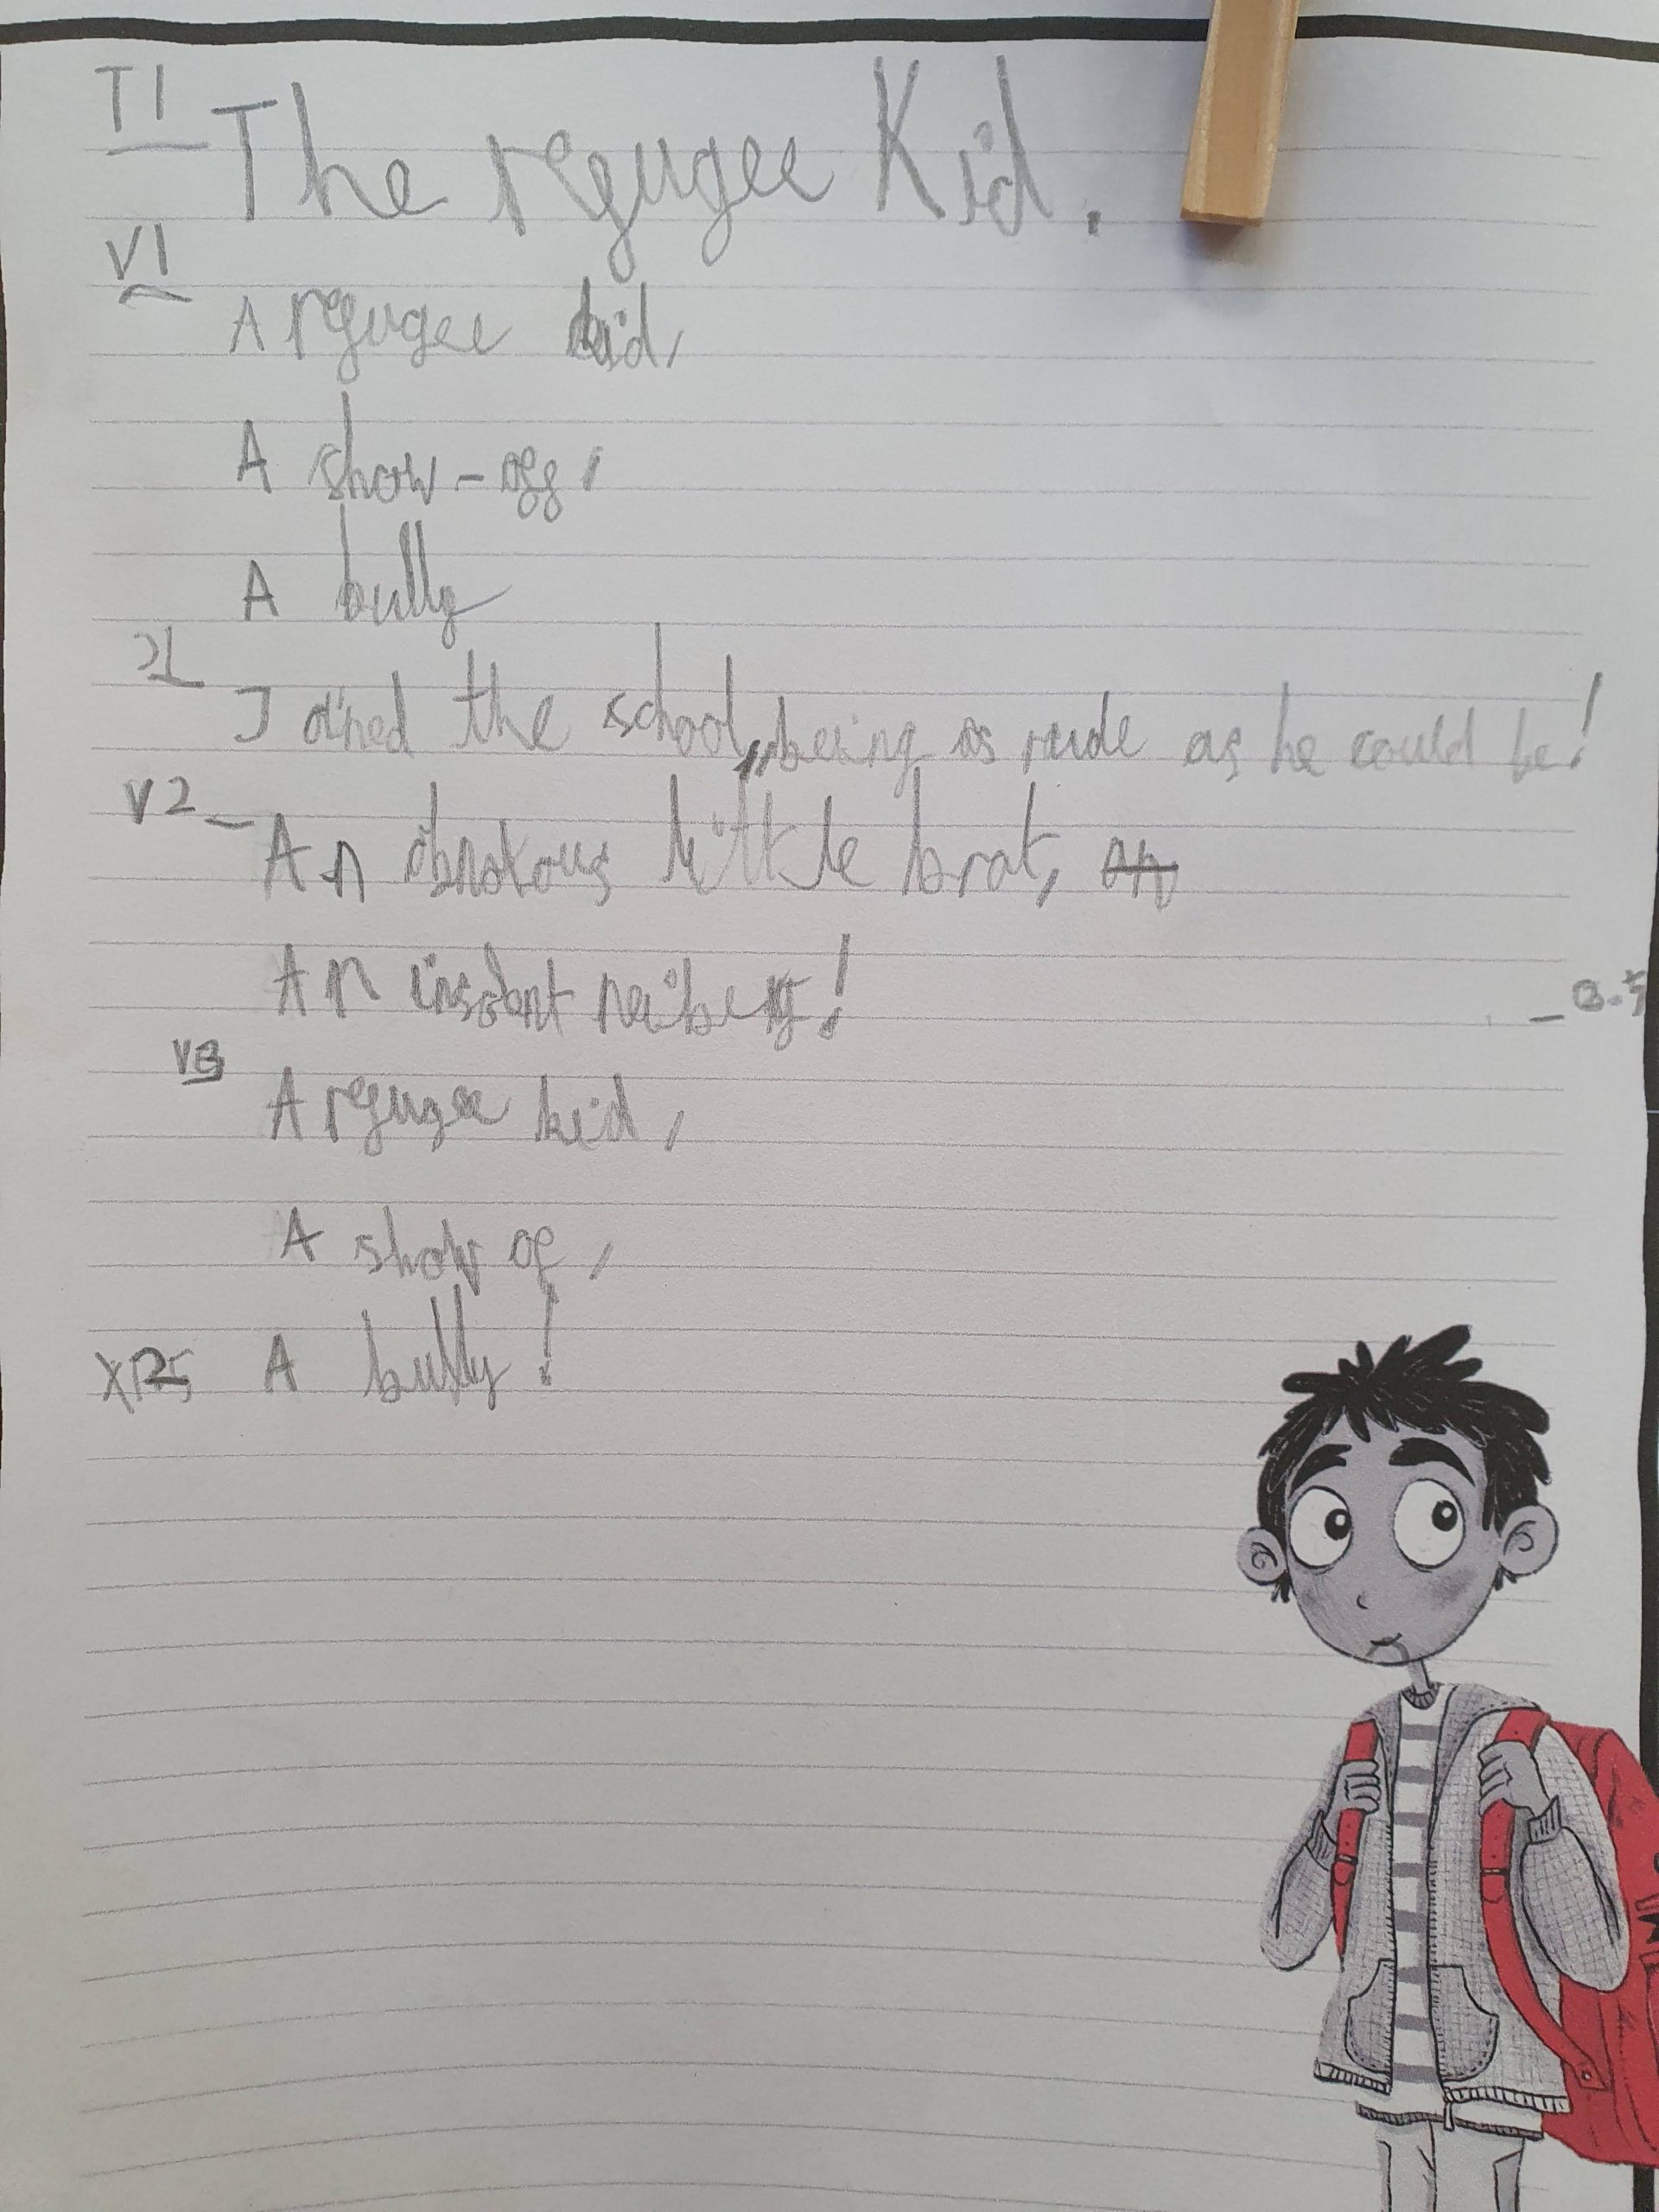 T1
The refugee Kid.
V1
A refugee kid,
A show-off,
A bully
Joined the school, being as rude as he could be!
V2
An obnoxous little brat,
An insolent
V3
A refugee kid,
A show of,
A bully!